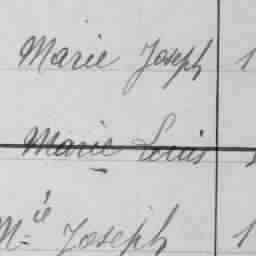 Marie Joseph 1
Marie Louis
Mie Joseph 1